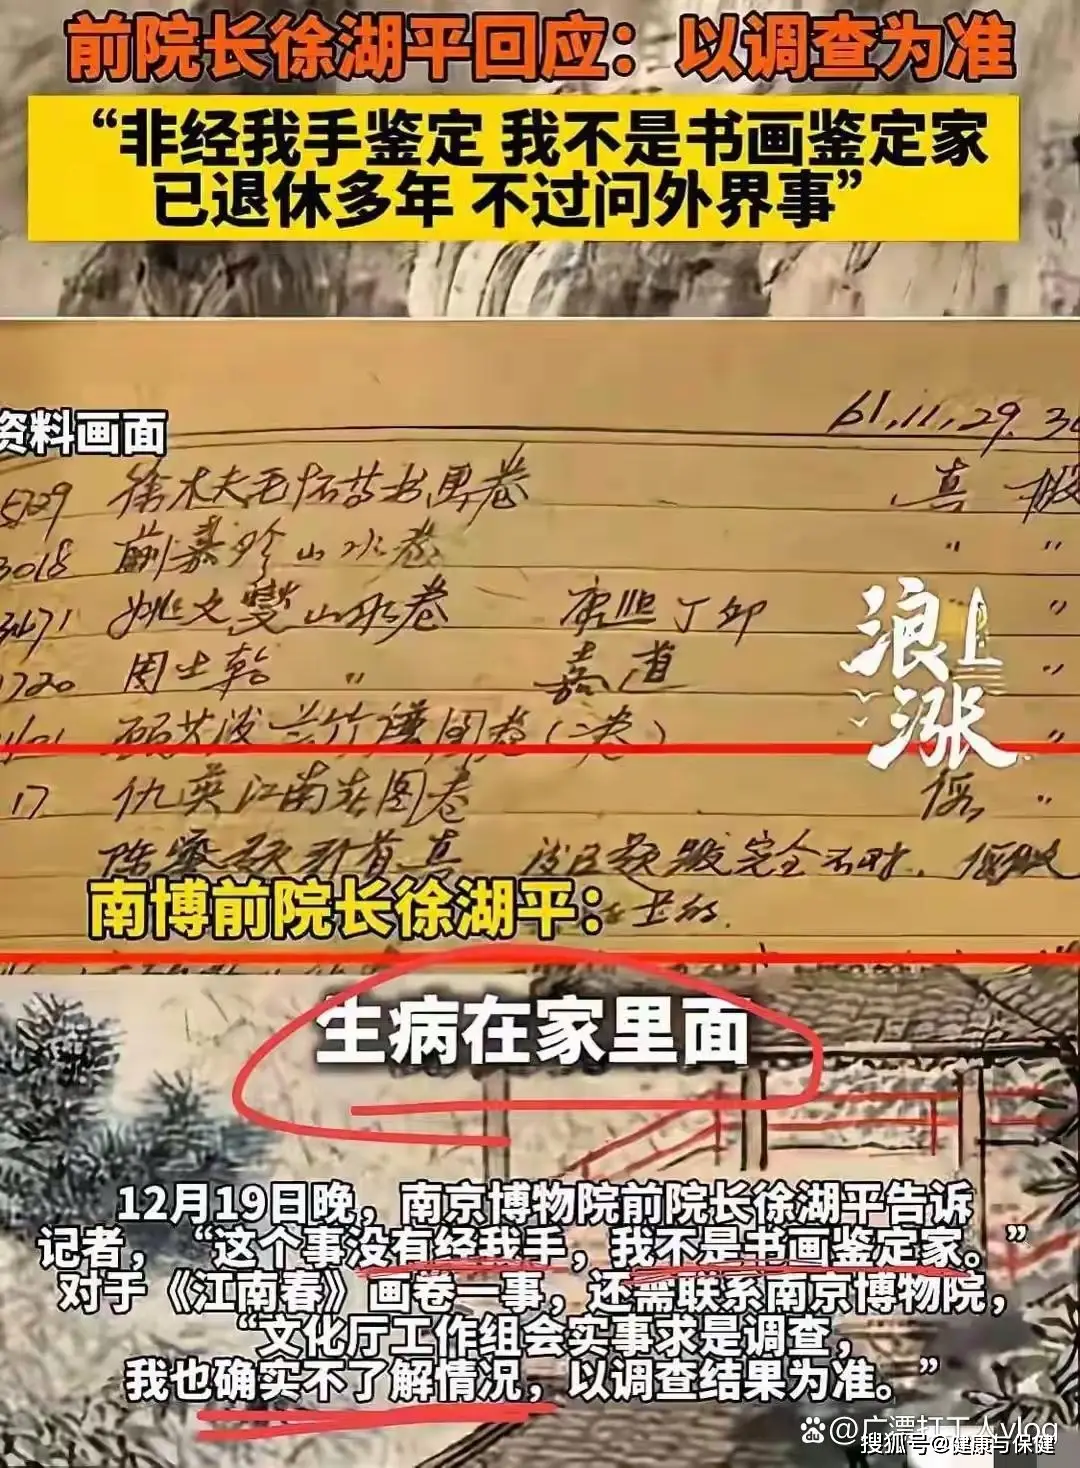 前院长徐湖平回应：以调查为准
“非经我手鉴定 我不是书画鉴定家
已退休多年 不过问外界事”
资料画面
61.11.29.30
5729 徐木夫毛怀芳书画卷 真
3018 蒯嘉珍山水卷 〃 〃
3471 姚文燮山水卷 康熙丁卯 〃
1720 周士乾 〃 嘉道 〃
兰竹 图卷（二卷） 〃
浪上涨
17 仇英江南春图卷 伪 〃
引首真 后面题跋完全不对
南博前院长徐湖平：
生病在家里面
12月19日晚，南京博物院前院长徐湖平告诉
记者，“这个事没有经我手，我不是书画鉴定家。”
对于《江南春》画卷一事，还需联系南京博物院，
“文化厅工作组会实事求是调查，
我也确实不了解情况，以调查结果为准。”
@广漂打工人vlog
搜狐号@健康与保健